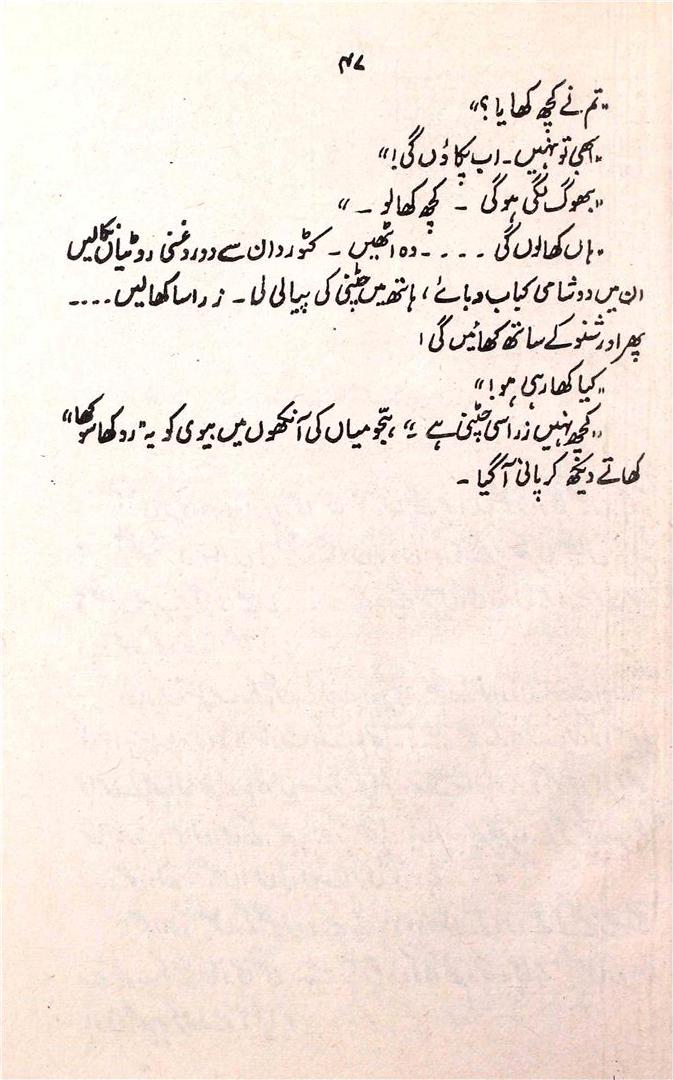 ۴۷
"تم نے کچھ کھایا؟"
"ابھی تو نہیں۔ اب پکاؤں گی!"
"بھوگ لگی ہوگی ۔ کچھ کھالو ۔"
ہاں کھالوں گی ۔۔۔۔ وہ اٹھیں ۔ کٹوردان سے دو روغنی روٹیاں نکالیں
ان میں دو شامی کباب دبائے، ہاتھ میں چٹنی کی پیالی لی ۔ زرا سا کھالیں ۔۔۔۔
پھر اور شنو کے ساتھ کھائیں گی!
"کیا کھا رہی ہو!"
"کچھ نہیں زراسی چٹنی ہے"، بجّو میاں کی آنکھوں میں بیوی کو یہ "روکھا سوکھا"
کھاتے دیکھ کر پانی آگیا ۔